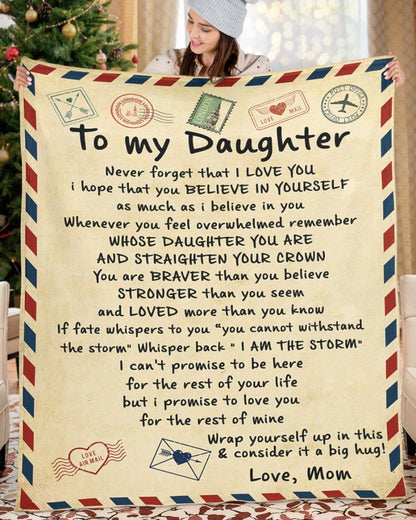 LOVE MAIL
POST OFFICE
To my Daughter
Never forget that I LOVE YOU
i hope that you BELIEVE IN YOURSELF
as much as i believe in you
Whenever you feel overwhelmed remember
WHOSE DAUGHTER YOU ARE
AND STRAIGHTEN YOUR CROWN
You are BRAVER than you believe
STRONGER than you seem
and LOVED more than you know
If fate whispers to you "you cannot withstand
the storm" Whisper back " I AM THE STORM"
I can't promise to be here
for the rest of your life
but i promise to love you
for the rest of mine
Wrap yourself up in this
& consider it a big hug!
LOVE
AIR MAIL
Love, Mom